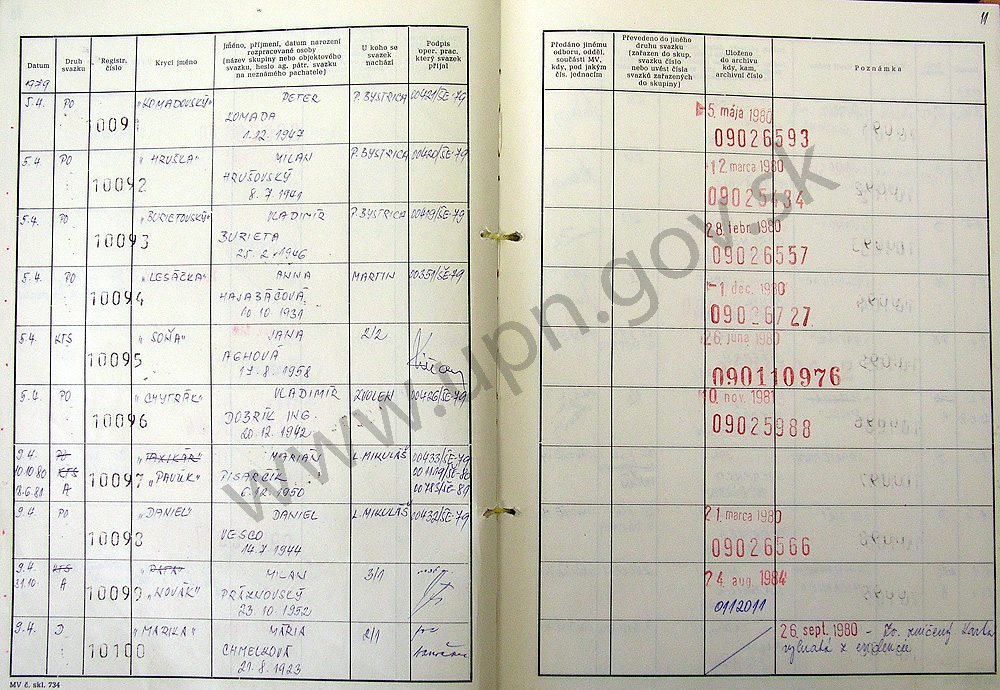 11
Datum
Druh svazku
Registr. číslo
Krycí jméno
Jméno, příjmení, datum narození
rozpracované osoby
(název skupiny nebo objektového
svazku, heslo ag. pátr. svazku
na neznámého pachatele)
U koho se
svazek
nachází
Podpis
oper. prac.
který svazek
přijal
Předáno jinému
odboru, odděl.
součásti MV,
kdy, pod jakým
čís. jednacím
Převedeno do jiného
druhu svazku
(zařazen do skup.
svazku číslo
nebo uvést čísla
svazků zařazených
do skupiny)
Uloženo
do archivu
kdy, kam,
archivní číslo
Poznámka
1979
5.4. PO „KOMADOVSKÝ" PETER P. BYSTRICA 00421/ŠE-79 5. mája 1980
1009 KOMADA 09026593
1.12. 1947
5.4. PO „HRUŠKA" MILAN P. BYSTRICA 00420/ŠE-79 12. marca 1980
10092 HRUŠOVSKÝ 09025434
8. 7. 1941
5.4. PO „BURIETOVSKÝ" VLADIMÍR P. BYSTRICA 00419/ŠE-79 28. febr. 1980
10093 BURIETA 09026557
25. 2. 1946
5.4. PO „LESÁČKA" ANNA MARTIN 00351/ŠE-79 -1. dec. 1980
10094 HAJABÁČOVÁ 09026727
10. 10. 1931
5.4. KTS „SOŇA" JANA 2/2 26. júna 1980
10095 AGHOVÁ 090110976
17. 8. 1958
5.4. PO „CHYTRÁK" VLADIMÍR ZVOLEN 00426/ŠE-79 10. nov. 1981
10096 DOBRÍK ING. 09025988
20. 12. 1942
9.4. PO „TAXIKÁR" MARIÁN L. MIKULÁŠ 00433/ŠE-79
10.10.80 KTS 10097 „PAVÚK" PISARČÍK 001119/ŠE-80
18.6.81 A 6. 12. 1950 00783/ŠE-81
9.4. PO „DANIEL" DANIEL L. MIKULÁŠ 00432/ŠE-79 21. marca 1980
10098 VESCO 09026566
14. 7. 1944
9.4. KTS „PAPA" MILAN 3/1 24. aug. 1984
31.10. A 10099 „NOVÁK" PRÁZNOVSKÝ 0112011
23. 10. 1952
9.4. D „MARIKA" MÁRIA 2/1 26. sept. 1980 - Zv. zničený karta
10100 CHMELKOVÁ vybratá z evidencie
21. 8. 1923
MV č. skl. 734
www.upn.gov.sk